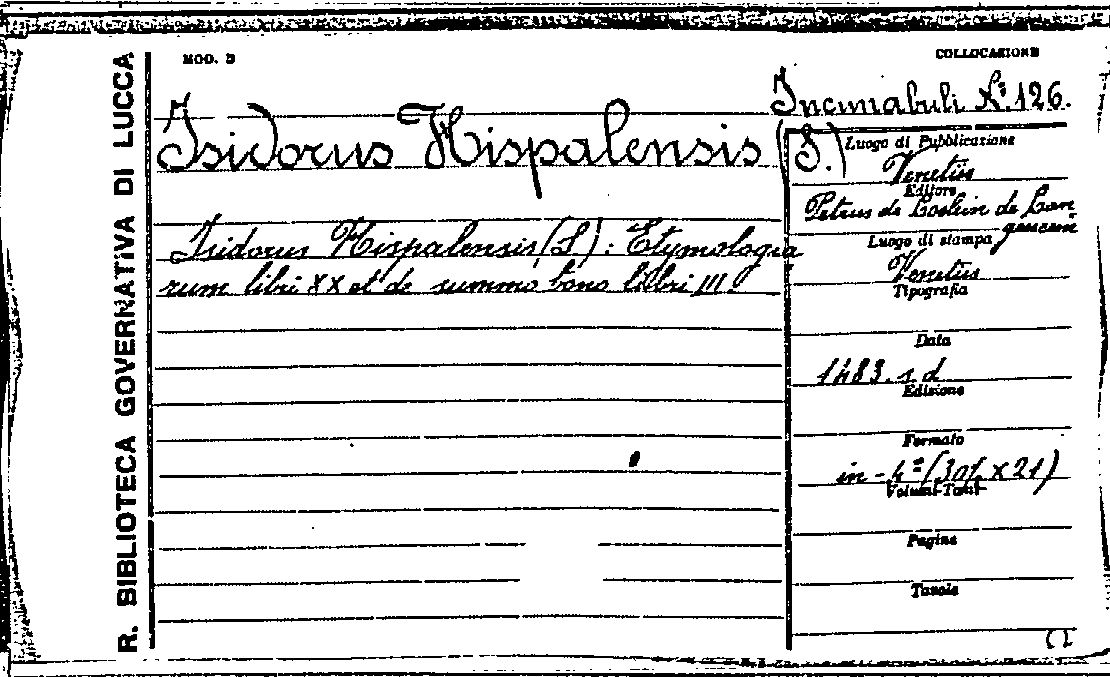 R. BIBLIOTECA GOVERNATIVA DI LUCCA
MOD. B
COLLOCAZIONE
Incunabuli N.º 126.
Isidorus Hispalensis (S.)
Isidorus Hispalensis (S) : Etymologia
rum libri XX et de summo bono libri III.
Luogo di Pubblicazione
Venetiis
Editore
Petrus de Loslein de Lan
gencen
Luogo di stampa
Venetiis
Tipografia
Data
1483. s. d
Edizione
Formato
in-4º (30½ x 21)
Volumi-Tomi
Pagine
Tavole